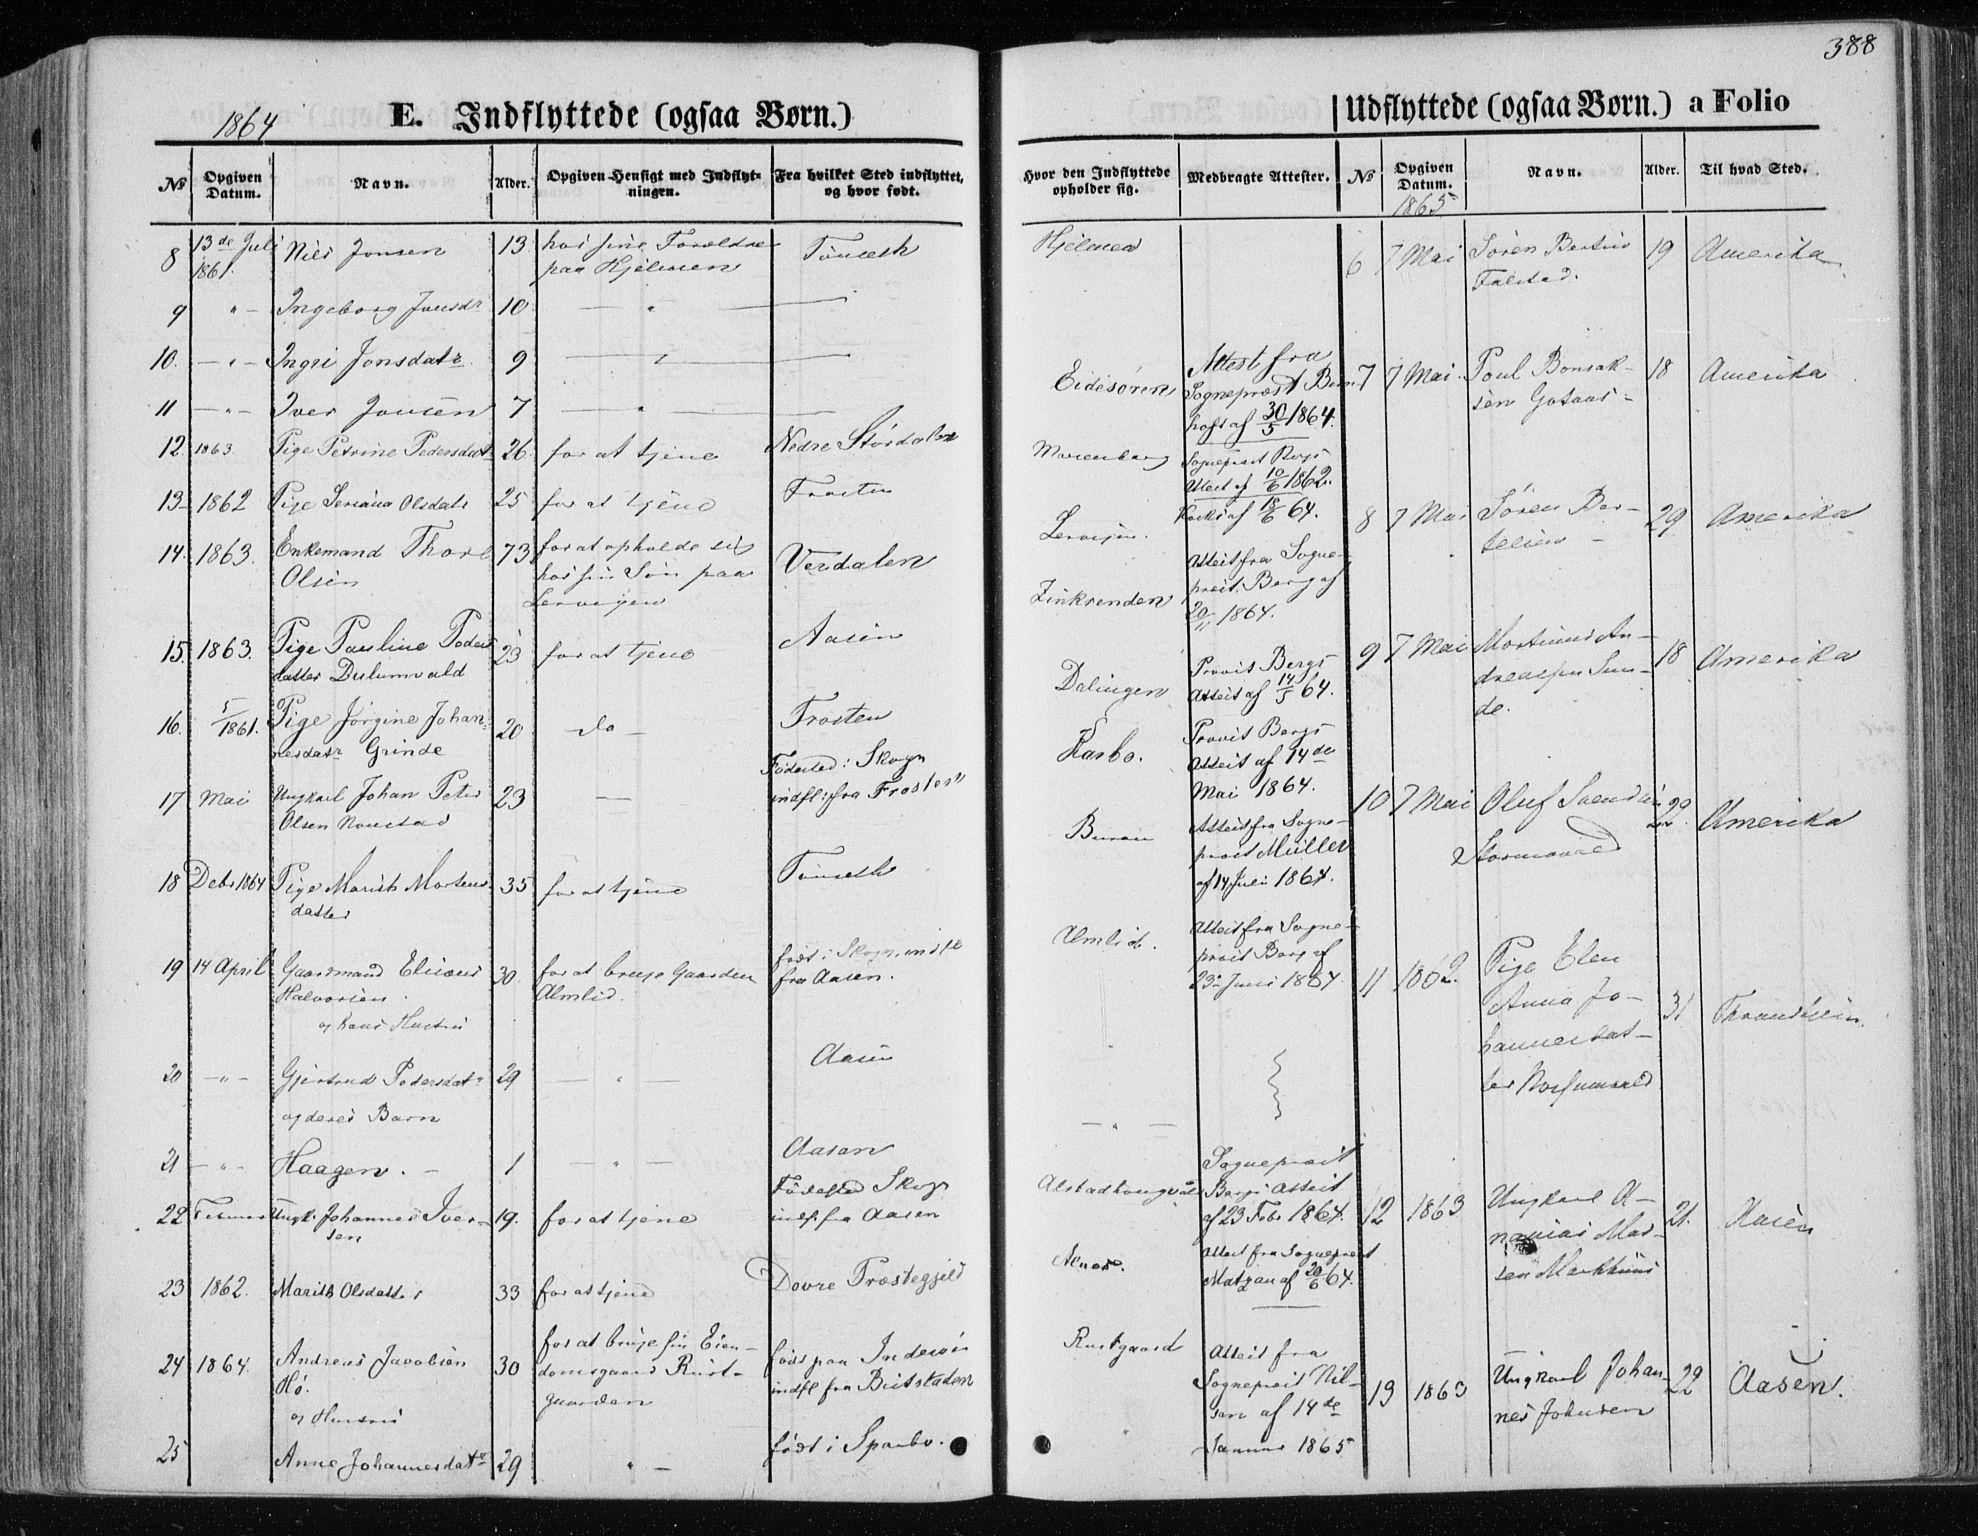 388
1864
E. Indflyttede (ogsaa Børn.)
Udflyttede (ogsaa Børn.) a Folio
№ Opgiven Datum. Navn. Alder. Opgiven Hensigt med Indflytningen. Fra hvilket Sted indflyttet, og hvor født.
Hvor den Indflyttede opholder sig. Medbragte Attester. № Opgiven Datum. Navn. Alder. Til hvad Sted.
1865
8 13de Juli 1861. Nils Jonsen 13 hos sine Forældre paa Hjelmen Tönseth
9 " Ingeborg Jonsdr 10 "
10. " Ingri Jonsdatr 9 "
11 " Iver Jonsen 7 "
12. 1863 Pige Petrine Pedersdatr 26 for at tjene Nedre Stördalen
13 1862 Pige Olsdatr 25 for at tjene Frosten
14. 1863. Enkemand Thore Olsen 73 for at opholde sig hos sin Sön paa Lervigen Verdalen
15. 1863. Pige Pauline Peders datter 23 for at tjene Aasen
16. 5/1861. Pige Jørgine Johannesdatr Grinde 20 do Frosten
17 Mai Ungkarl Johan Peter Olsen 23 — Födested: Skogn indfl: fra Frosten
18 Debr 1864 Pige Marith Mortens datter 35 for at tjene Tönseth
19 14 April Gaardmand Eliseus Halvorsen 30. for at bruge Gaarden Almlid. födt i Skogn, indfl fra Aasen.
og hans Hustru
20 " Gjertrud Pedersdatr 29 " Aasen
og deres Barn
21 " Haagen. 1 " Aasen
22 Ungk. Johannes Iversen 19. for at tjene Födested Skogn indf. fra Aasen
23 1862. Marith Olsdatter 33 for at tjene Dovre Præstegjeld
24 1864. Andreas Jacobsen Hö. 30 for at bruge sin Eiendomsgaard Rustgaarden födt paa Inderöen indfl fra Beitstaden
og Hustru
25 Anne Johannesdatr 29 " födt i Sparbo.
Hjelmen
Eidesören Attest fra Sognepræst af 30/5 1864.
Sognepræst Attest af 10/6 1862.
af 18/6 64.
Attest fra Sognepræst Berg af 20/11 1864.
Provst Bergs Attest af 14/5 64.
Karbo. Provst Bergs Attest af 14de Mai 1864.
Attest fra Sognepræst Müller af 14 Juli 1864.
Almlid. Attest fra Sognepræst Berg af 23de Juni 1864
"
"
Sognepræst Bergs Attest af 23 Febr 1864.
Attest fra Sognepræst af 20/6 64.
Rustgaard Attest fra Sognepræst Nilsen af 14de Januar 1865
"
6 7 Mai Sören Bertin Falstad. 19 Amerika
7 7 Mai. Poul Bonsaksen 18 Amerika
8 7 Mai Sören Bertelsen 29 Amerika
9 7 Mai Martinus Andreassen Sunde. 18 Amerika
10 7 Mai Oluf Svendsen 22. Amerika
11 1862. Pige Elen Anna Johannesdatter 31 Throndhjem
12 1863 Ungkarl Ananias 21. Aasen
13 1863 Ungkarl Johannes Johnsen 22 Aasen.